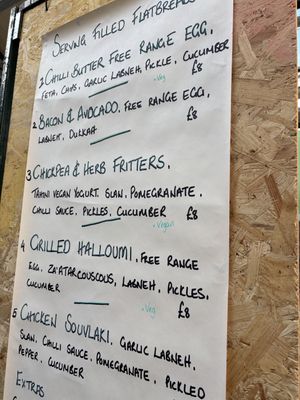 SERVING FILLED FLATBREADS
1 CHILLI BUTTER FREE RANGE EGG,
FETA, CHIPS, GARLIC LABNEH, PICKLE, CUCUMBER
- Veg £8
2 BACON & AVOCADO, FREE RANGE EGG,
LABNEH, DUKKAH £8
3 CHICKPEA & HERB FRITTERS,
TAHINI VEGAN YOGURT, SLAW, POMEGRANATE,
CHILLI SAUCE, PICKLES, CUCUMBER £8
- Vegan
4 GRILLED HALLOUMI, FREE RANGE
EGG, ZA'ATAR COUSCOUS, LABNEH, PICKLES,
CUCUMBER
- Veg £8
5 CHICKEN SOUVLAKI, GARLIC LABNEH,
SLAW, CHILLI SAUCE, POMEGRANATE, PICKLED
PEPPER, CUCUMBER
EXTRAS